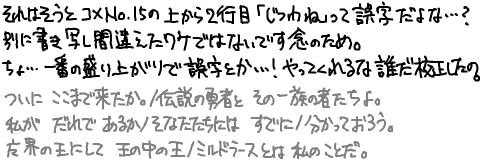 それはそうとコメNo.15の上から2行目「じつわね」って誤字だよな…?
別に書き写し間違えたワケではないです念のため。
ちょ…一番の盛り上がりで誤字とか…!やってくれるな誰だ校正したの。
ついに ここまで来たか。/伝説の勇者と その一族の者たちよ。
私が だれで あるか/そなたたちには すでに/分かっておろう。
魔界の王にして 王の中の王/ミルドラースとは 私のことだ。